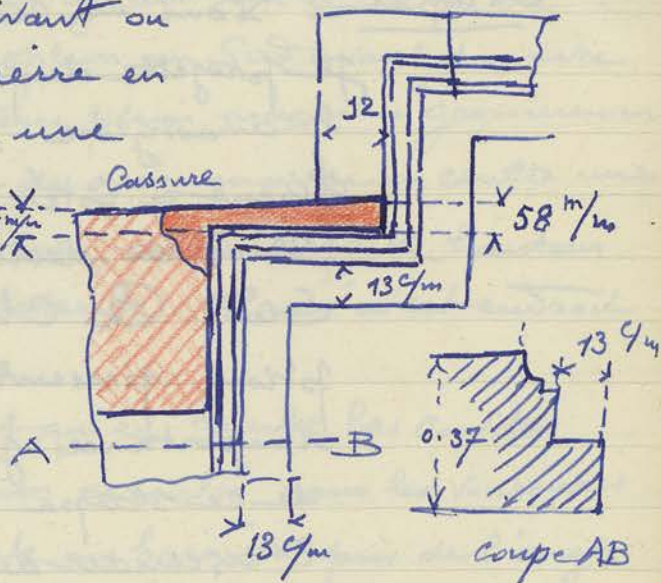 vant ou
ierre en
une
12
Cassure
m/m
58 m/m
13 c/m
13 c/m
A
B
0.37
13 c/m
coupe AB